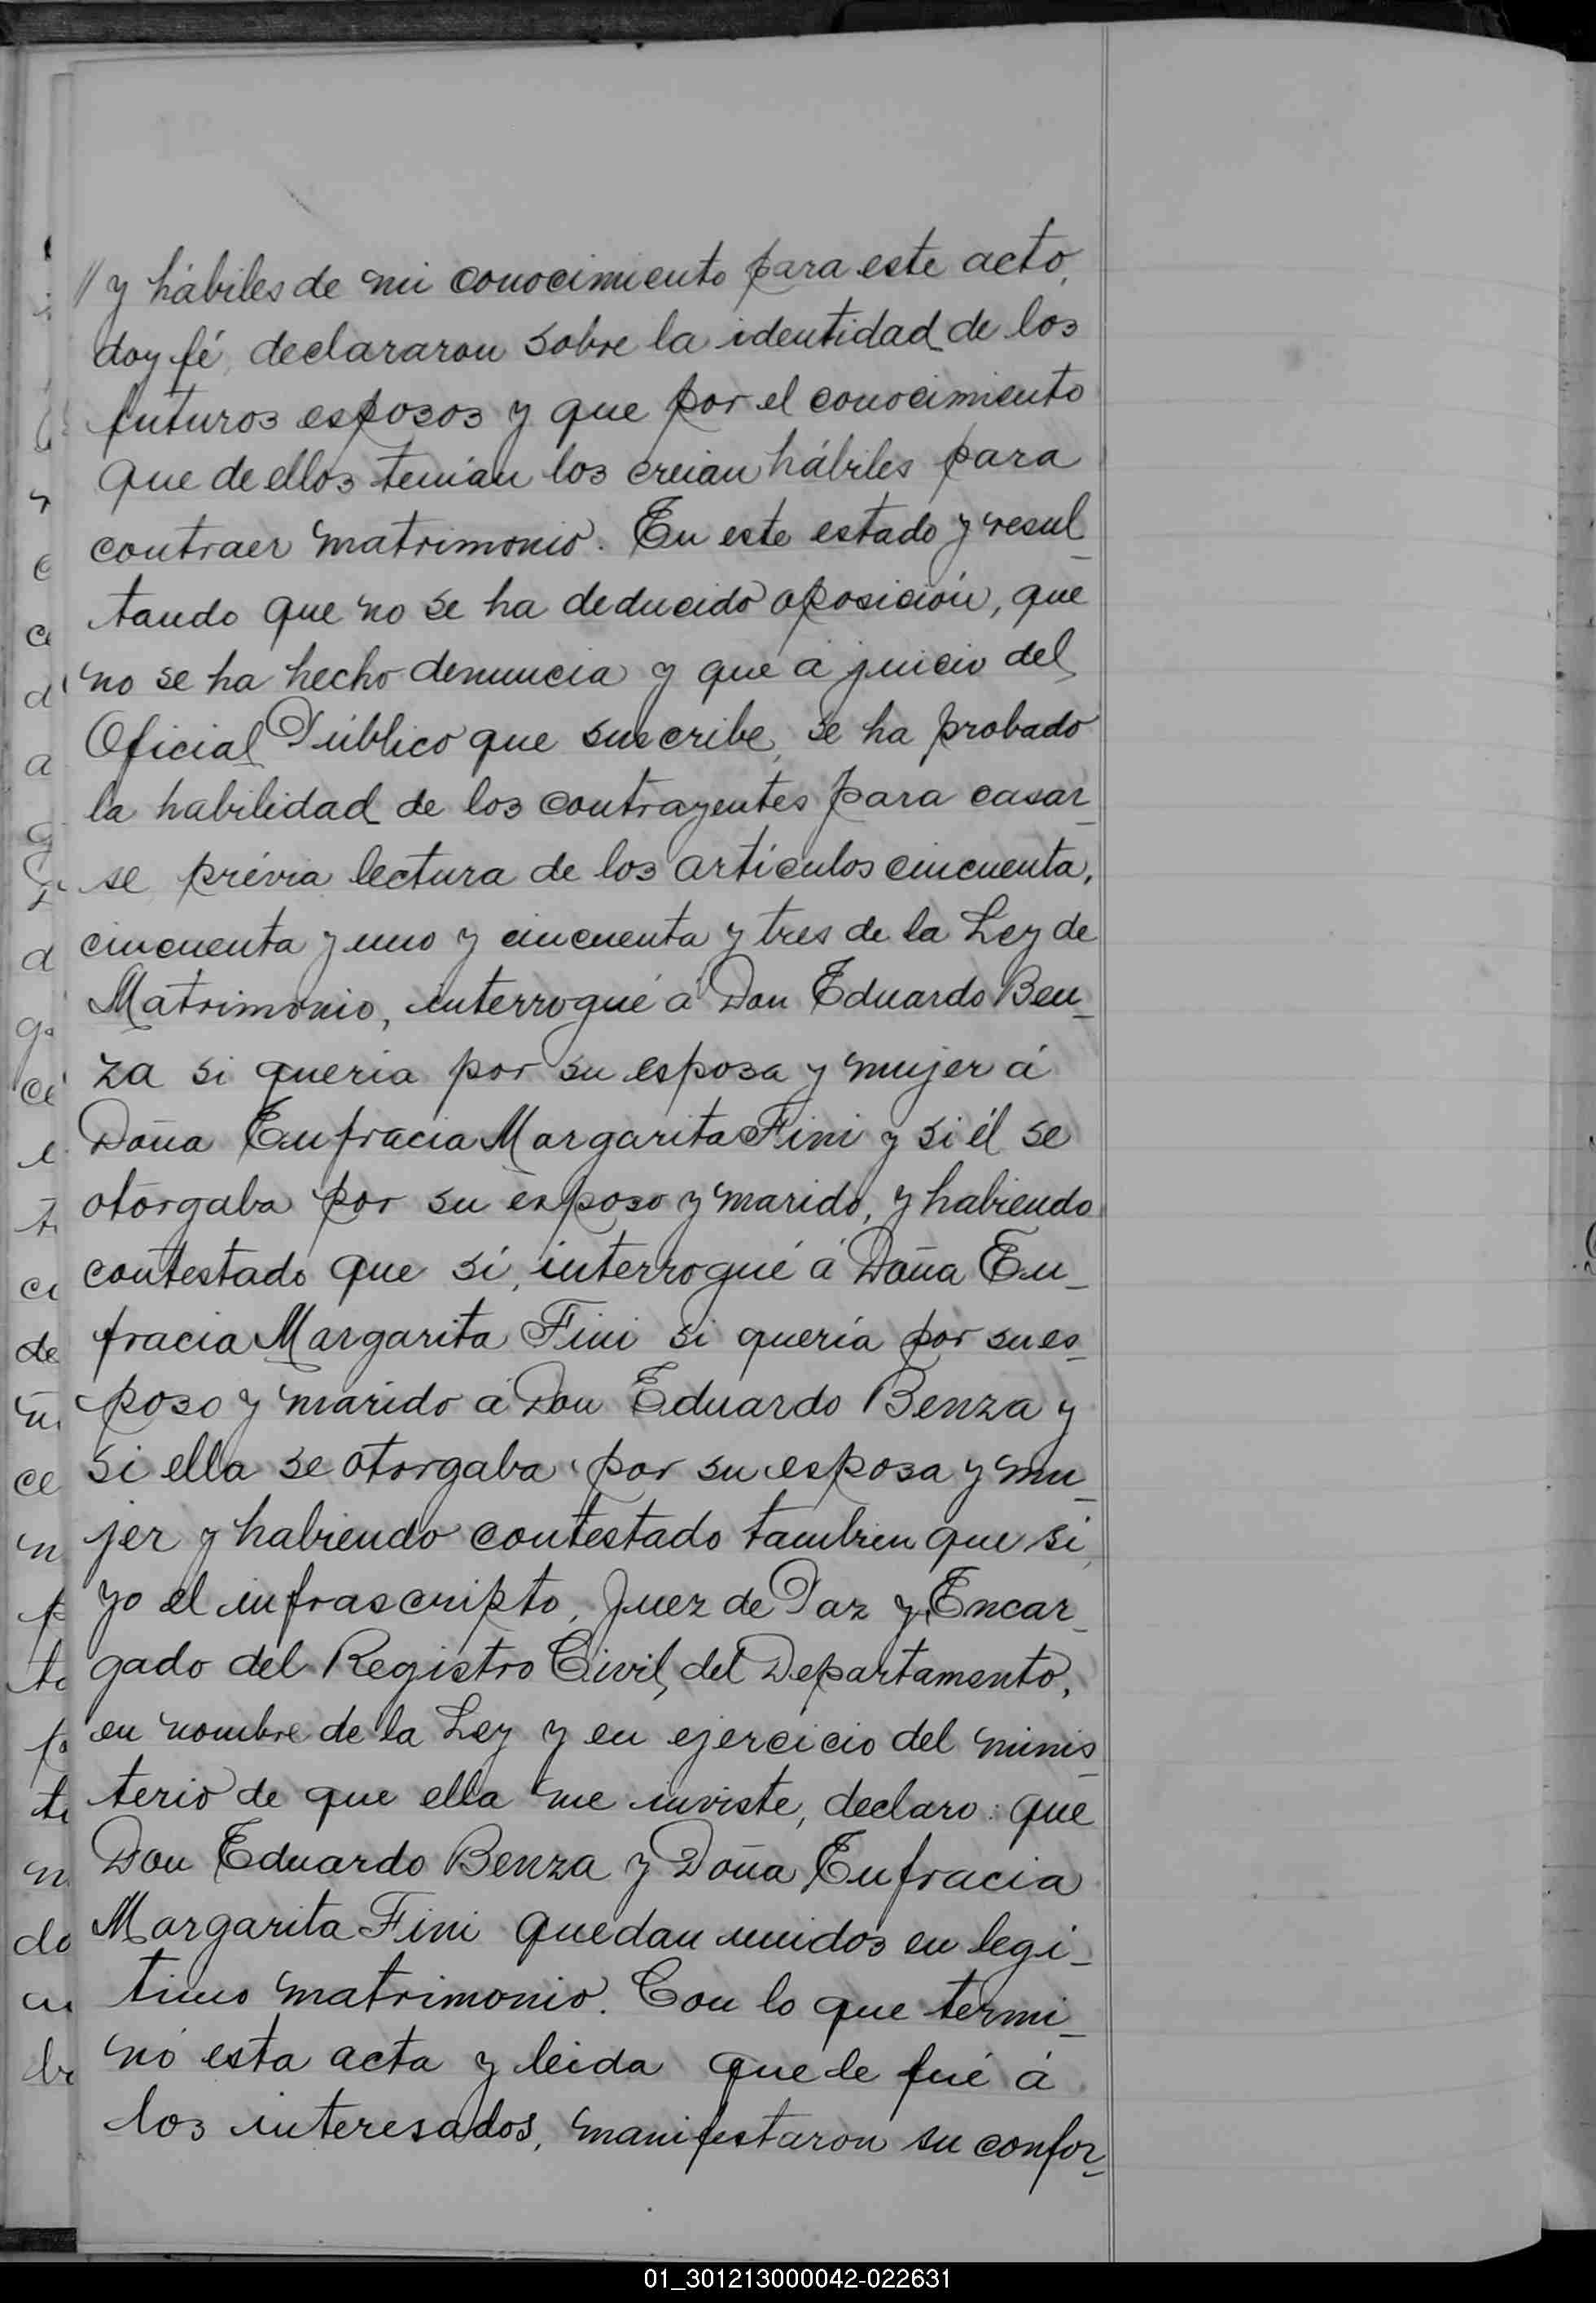 // y hábiles de mi conocimiento para este acto,
doy fé, declararon sobre la identidad de los
futuros esposos y que por el conocimiento
que de ellos tenían los creian hábiles para
contraer matrimonio. En este estado y resul_
tando que no se ha deducido oposición, que
no se ha hecho denuncia y que á juicio del
Oficial Público que suscribe, se ha probado
la habilidad de los contrayentes para casar_
se, prévia lectura de los artículos cincuenta,
cincuenta y uno y cincuenta y tres de la Ley de
Matrimonio, interrogué á Don Eduardo Ben_
za si queria por su esposa y mujer á
Doña Eufracia Margarita Fini y si él se
otorgaba por su esposo y marido, y habiendo
contestado que sí, interrogué á Doña Eu_
fracia Margarita Fini si quería por su es_
poso y marido á Don Eduardo Benza y
si ella se otorgaba por su esposa y mu_
jer y habiendo contestado tambien que si,
yo el infrascripto, Juez de Paz y Encar_
gado del Registro Civil, del Departamento,
en nombre de la Ley y en ejercicio del minis_
terio de que ella me inviste, declaro: que
Don Eduardo Benza y Doña Eufracia
Margarita Fini quedan unidos en legí_
timo matrimonio. Con lo que termi_
nó esta acta y leida que le fué á
los interesados, manifestaron su confor_
01_301213000042-022631